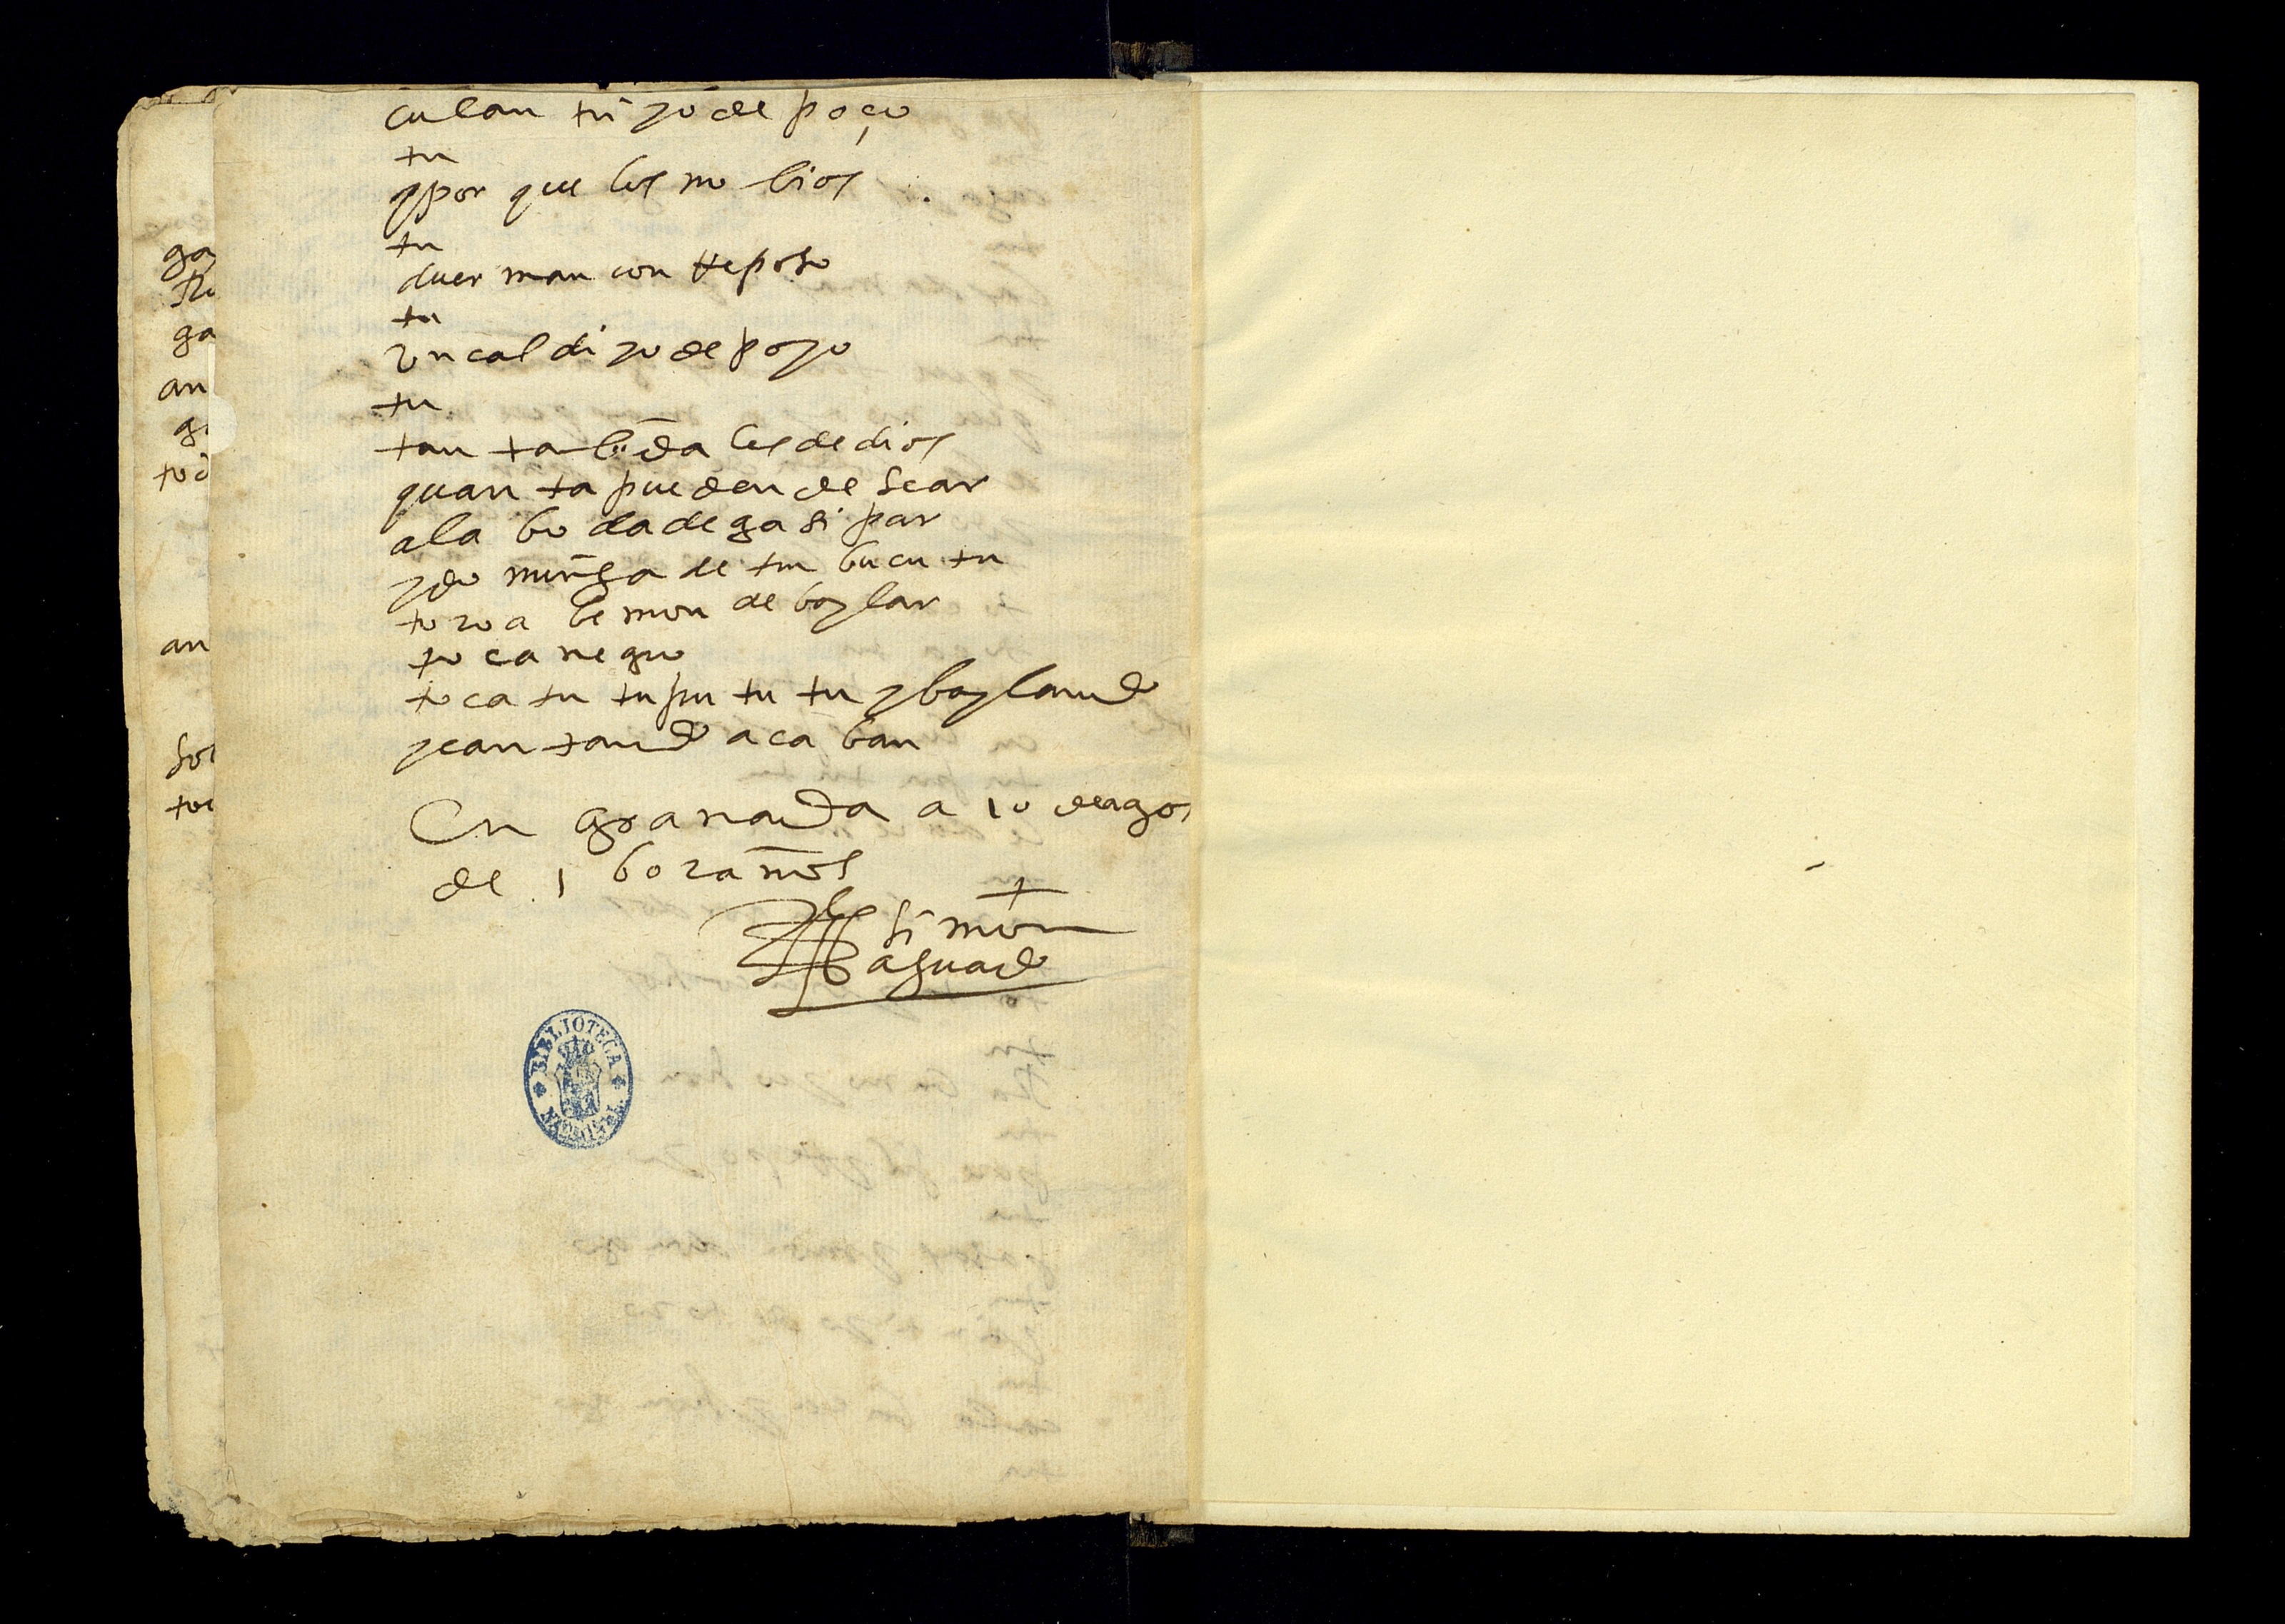 culantrijo de poço
tu
y por que los nobios
tu
duerman con Reposo
tu
un caldijo de poyo
tu
tanta bida les de dios
quanta pueden desear
a la boda de gasipar
y dominga de tumbucutu
toro abemon de baylar
toca negro
toca tu tu pu tu tu y baylando
y cantando acaban
En granada a 10 de agos
de 1602 años
simon
aguado
ga
ga
an
tod
an
BIBLIOTECA NACIONAL